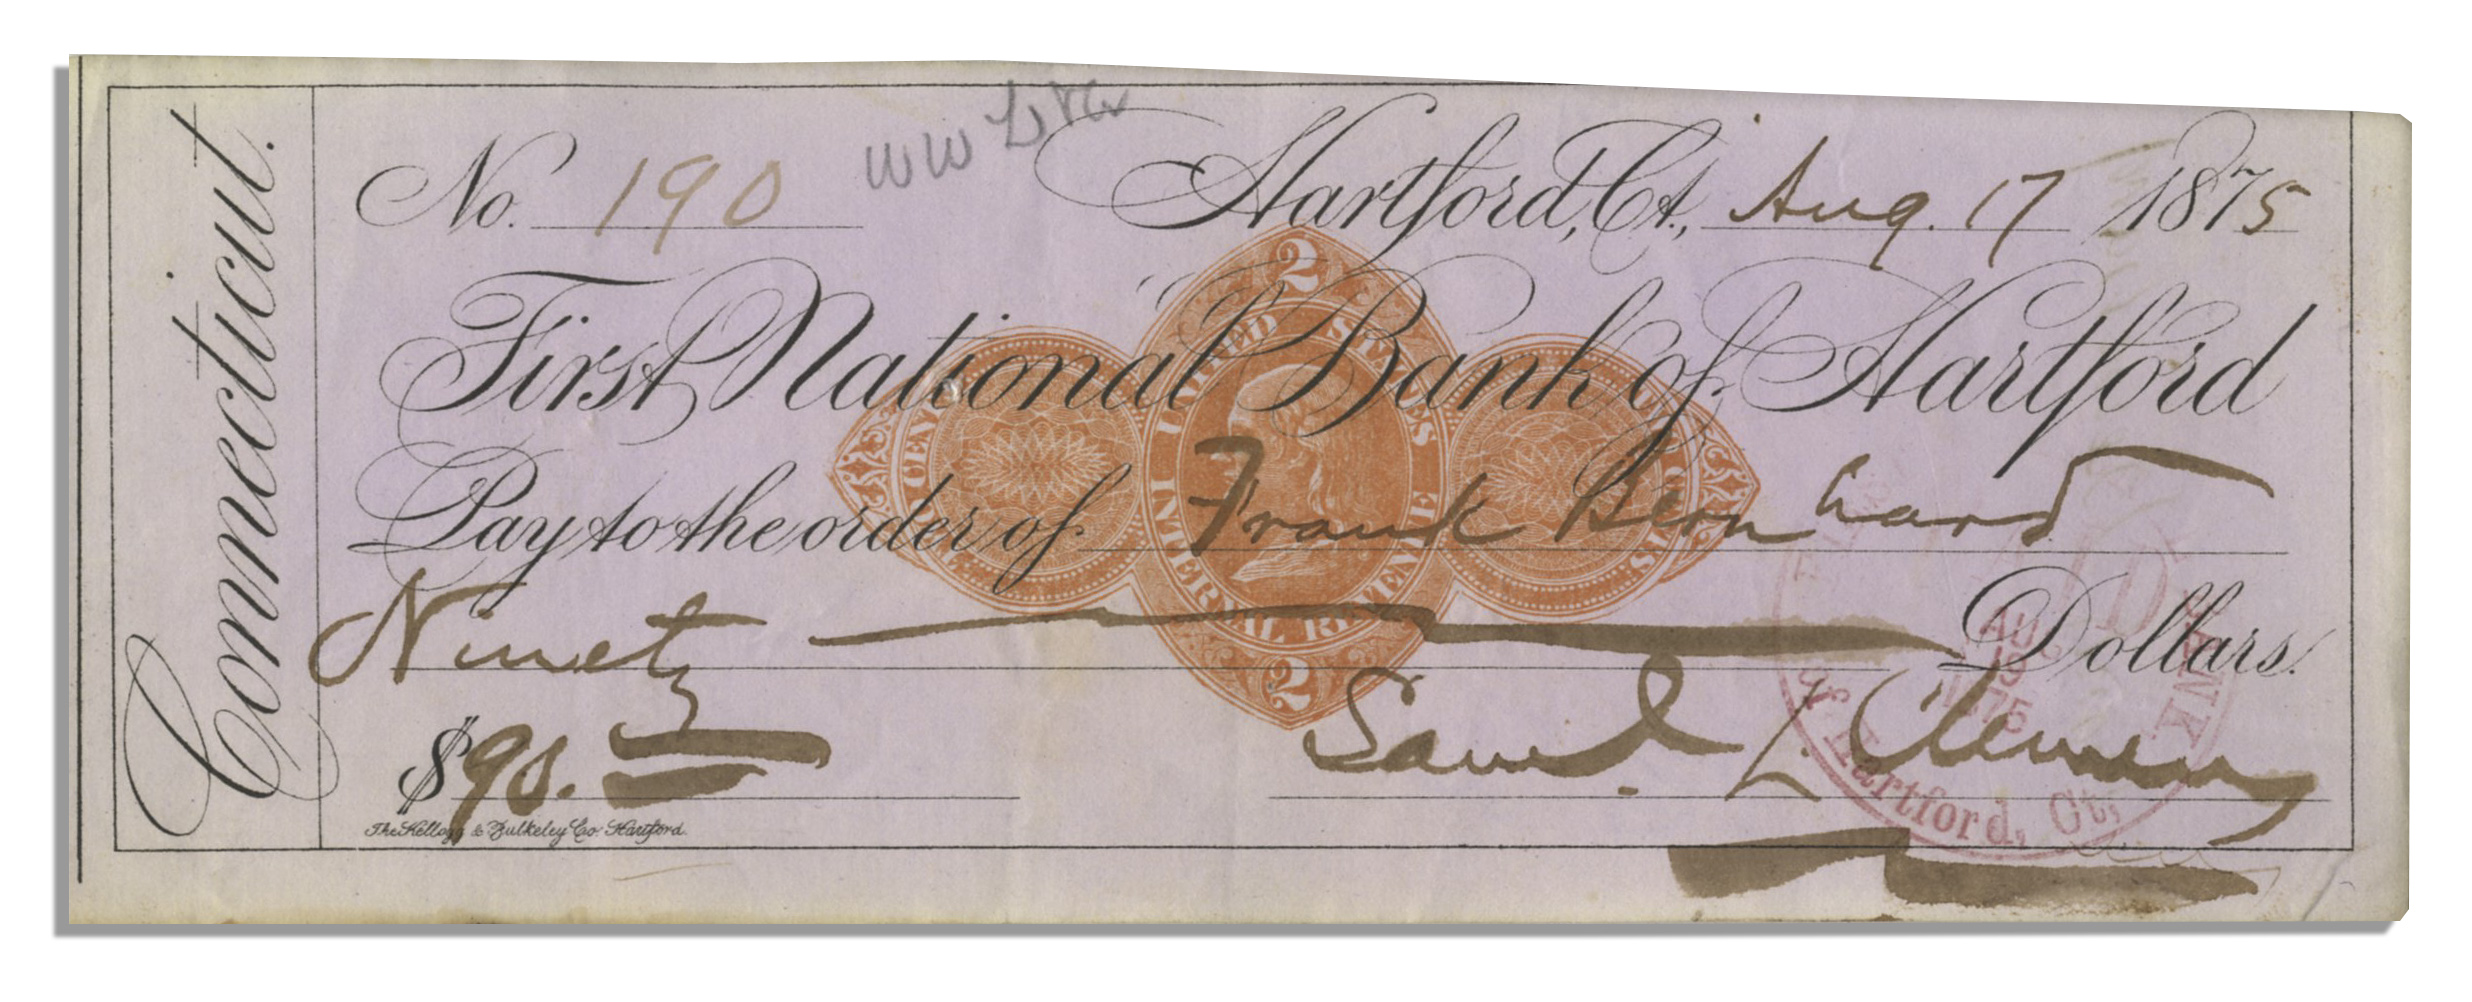 Connecticut.
No. 190 Hartford, Ct., Aug. 17 1875
First National Bank of Hartford
Pay to the order of Frank Bernhard
Ninety Dollars.
$90.
Saml. L. Clemens
The Kellogg & Bulkeley Co. Hartford.
2
UNITED STATES
INTERNAL REVENUE
2
PAID
AUG
19
1875
BANK
of Hartford, Ct.